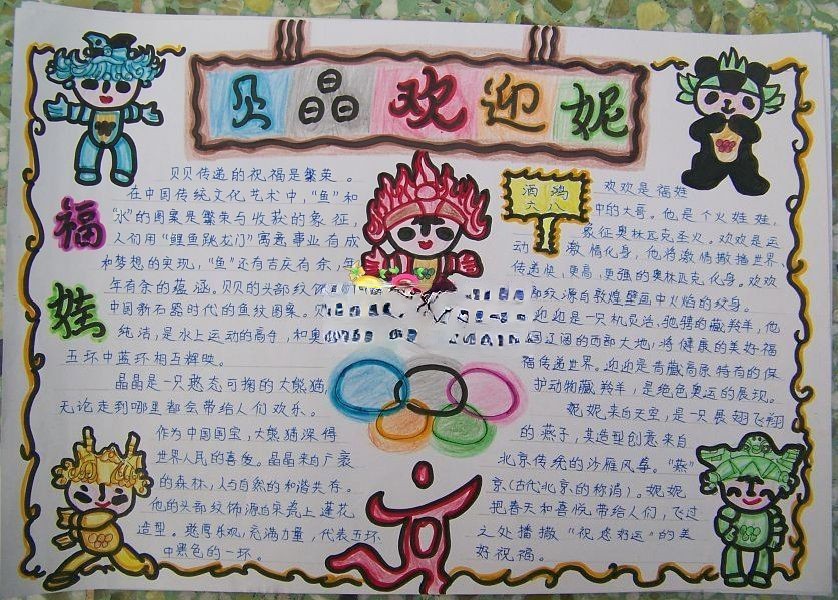 贝晶欢迎妮
福
娃
贝贝传递的祝福是繁荣。
在中国传统文化艺术中,“鱼”和
“水”的图案是繁荣与收获的象征,
人们用“鲤鱼跳龙门”寓意事业有成
和梦想的实现,“鱼”还有吉庆有余,年
年有余的蕴涵。贝贝的头部纹饰
中国新石器时代的鱼纹图案。贝
纯洁,是水上运动的高手,和奥
五环中蓝环相互辉映。
晶晶是一只憨态可掬的大熊猫,
无论走到哪里都会带给人们欢乐。
作为中国国宝,大熊猫深得
世界人民的喜爱。晶晶来自广袤
的森林,人与自然的和谐共存。
他的头部纹饰源自宋瓷上莲花
造型。憨厚乐观,充满力量,代表五环
中黑色的一环。
欢欢是福娃
中的大哥。他是个火娃娃,
象征奥林匹克圣火。欢欢是运
动激情化身,他将激情撒播世界、
传递快,更高,更强的奥林匹克化身。欢欢
部纹源自敦煌壁画中火焰的纹身。
迎迎是一只机灵活、驰骋的藏羚羊,他
国辽阔的西部大地,将健康的美好福
福传递世界。迎迎是青藏高原特有的保
护动物藏羚羊,是绝色奥运的展现。
妮妮来自天空,是一只展翅飞翔
的燕子,其造型创意来自
北京传统的沙雁风筝。“燕”
京(古代北京的称谓)。妮妮
把春天和喜悦带给人们,飞过
之处播撒“祝您好运”的美
好祝福。